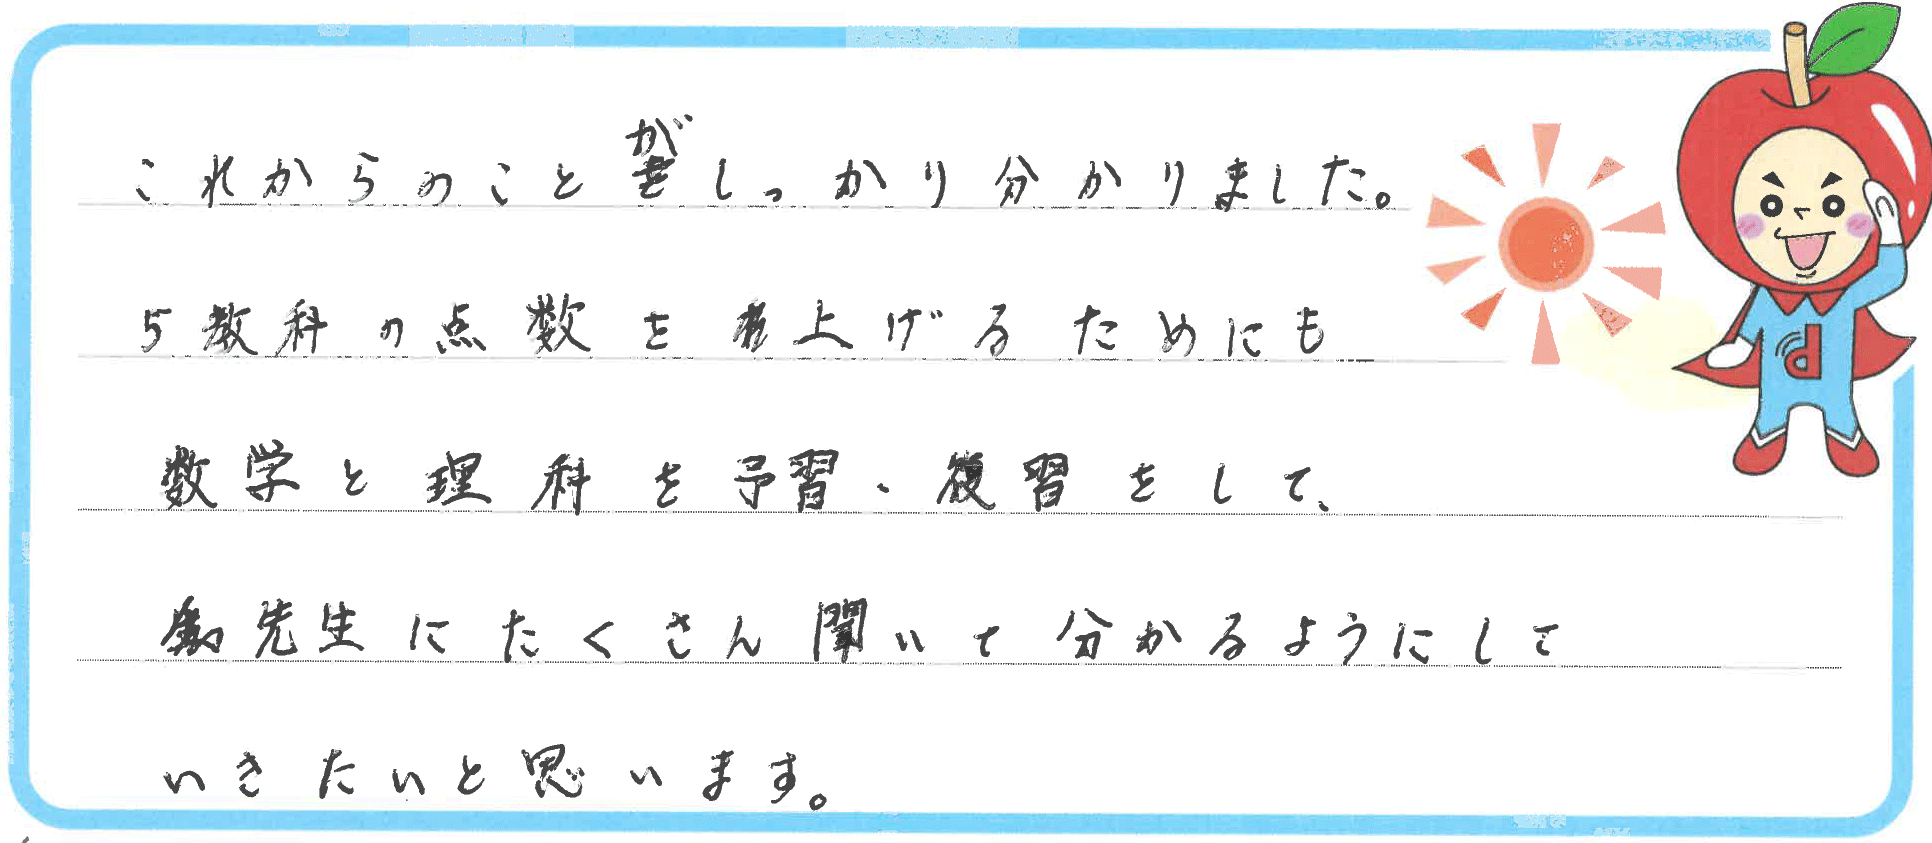 これからのことがしっかり分かりました。
5教科の点数を上げるためにも
数学と理科を予習、復習をして、
先生にたくさん聞いて分かるようにして
いきたいと思います。